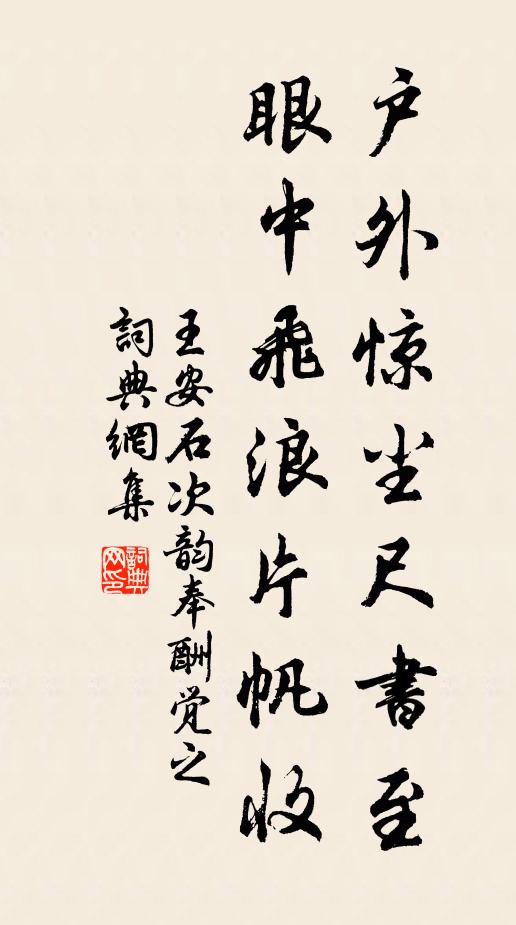 户外惊尘尺書至
眼中飛浪片帆收
王安石次韵奉酬觉之
詞典網集
詞典网印